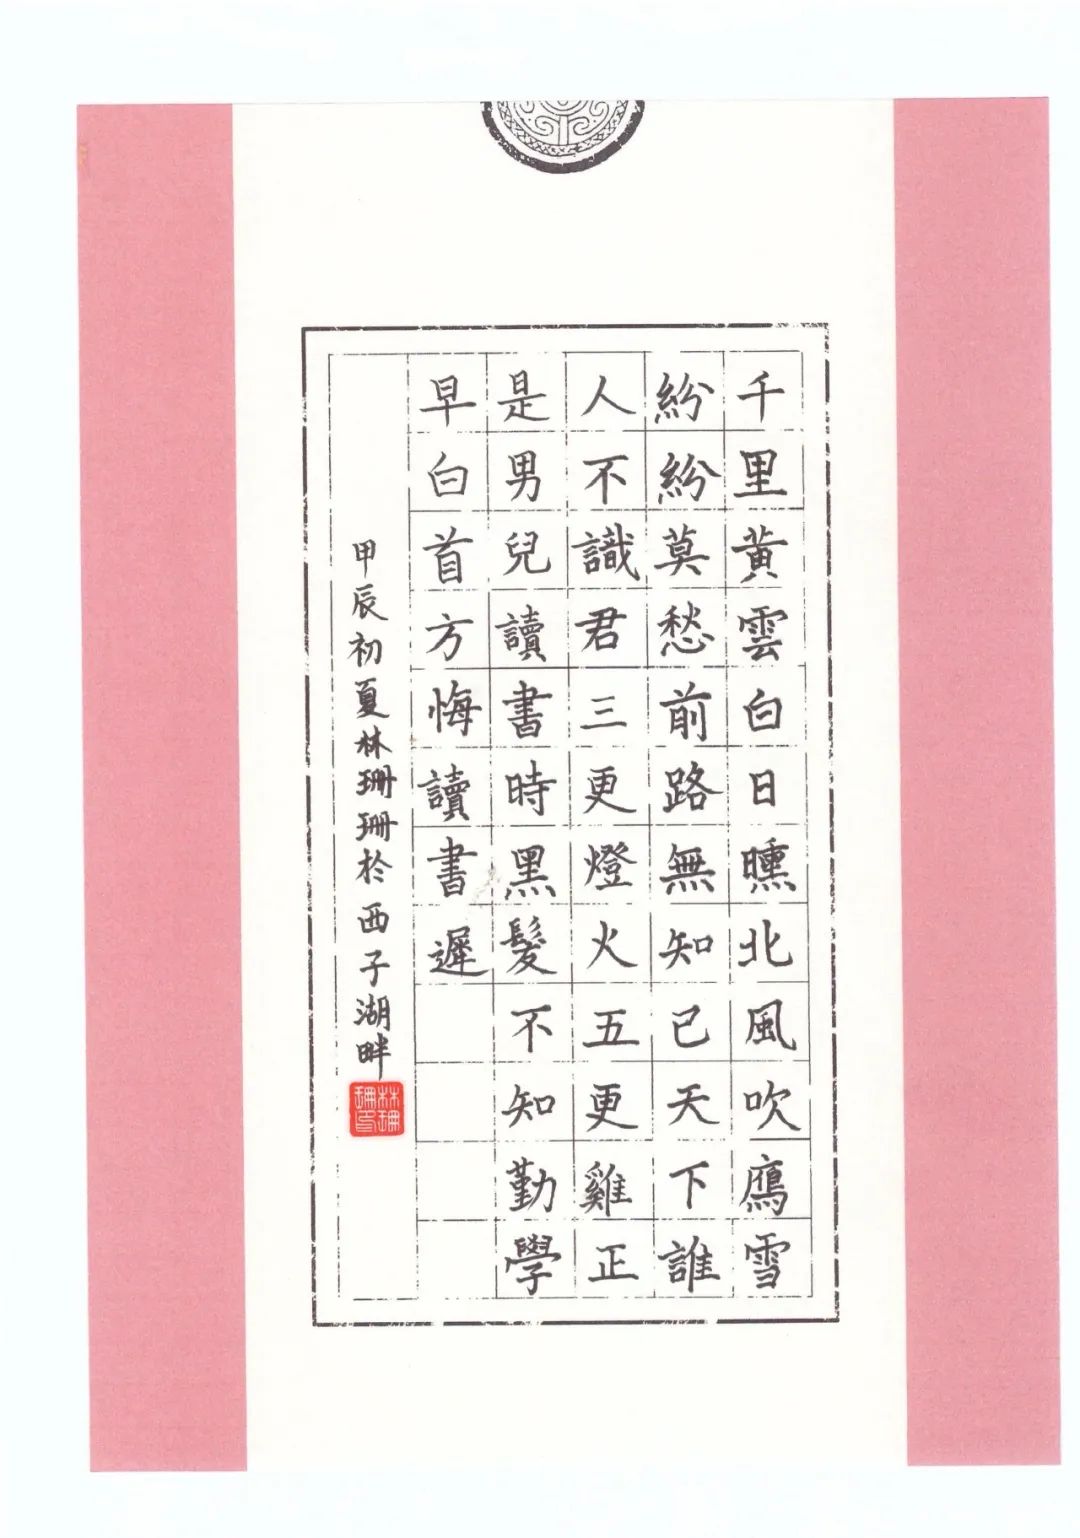 千里黃雲白日曛北風吹鴈雪
紛紛莫愁前路無知己天下誰
人不識君三更燈火五更雞正
是男兒讀書時黑髮不知勤學
早白首方悔讀書遲
甲辰初夏林珊珊於西子湖畔
林珊珊印